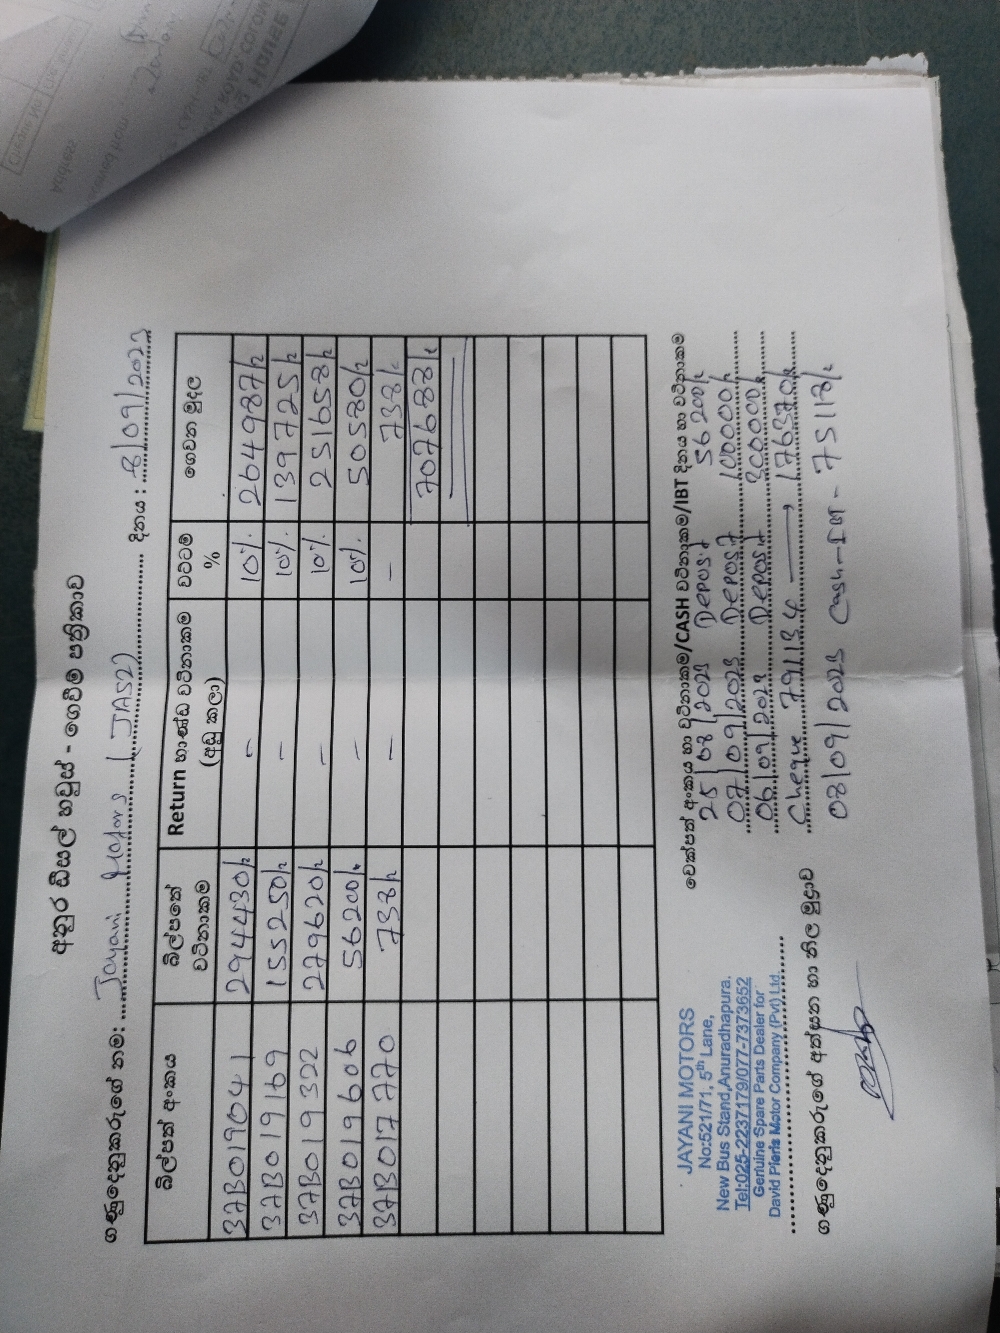 අනුර ඩීසල් හවුස් - ගෙවීම් පත්‍රිකාව
ගණුදෙනුකරුගේ නම: Jayani Motors (JAS2) දිනය : 8/09/2023
බිල්පත් අංකය බිල්පතේ වටිනාකම Return භාණ්ඩ වටිනාකම (අඩු කලා) වට්ටම % ගෙවන මුදල
37B019041 294430/= - 10% 264987/=
37B019169 155250/= - 10% 139725/=
37B019322 279620/= - 10% 251658/=
37B019606 56200/= - 10% 50580/=
37B017770 738/= - - 738/=
707688/=
චෙක්පත් අංකය හා වටිනාකම/CASH වටිනාකම/IBT දිනය හා වටිනාකම
25/08/2023 Deposit 56200/=
07/09/2023 Deposit 100000/=
06/09/2023 Deposit 300000/=
Cheque 791134 → 176370/=
08/09/2023 Cash-IBT - 75118/=
JAYANI MOTORS
No:521/71, 5th Lane,
New Bus Stand,Anuradhapura.
Tel:025-2237179/077-7373652
Genuine Spare Parts Dealer for
David Pieris Motor Company (Pvt) Ltd
ගණුදෙනුකරුගේ අත්සන හා නිල මුද්‍රාව